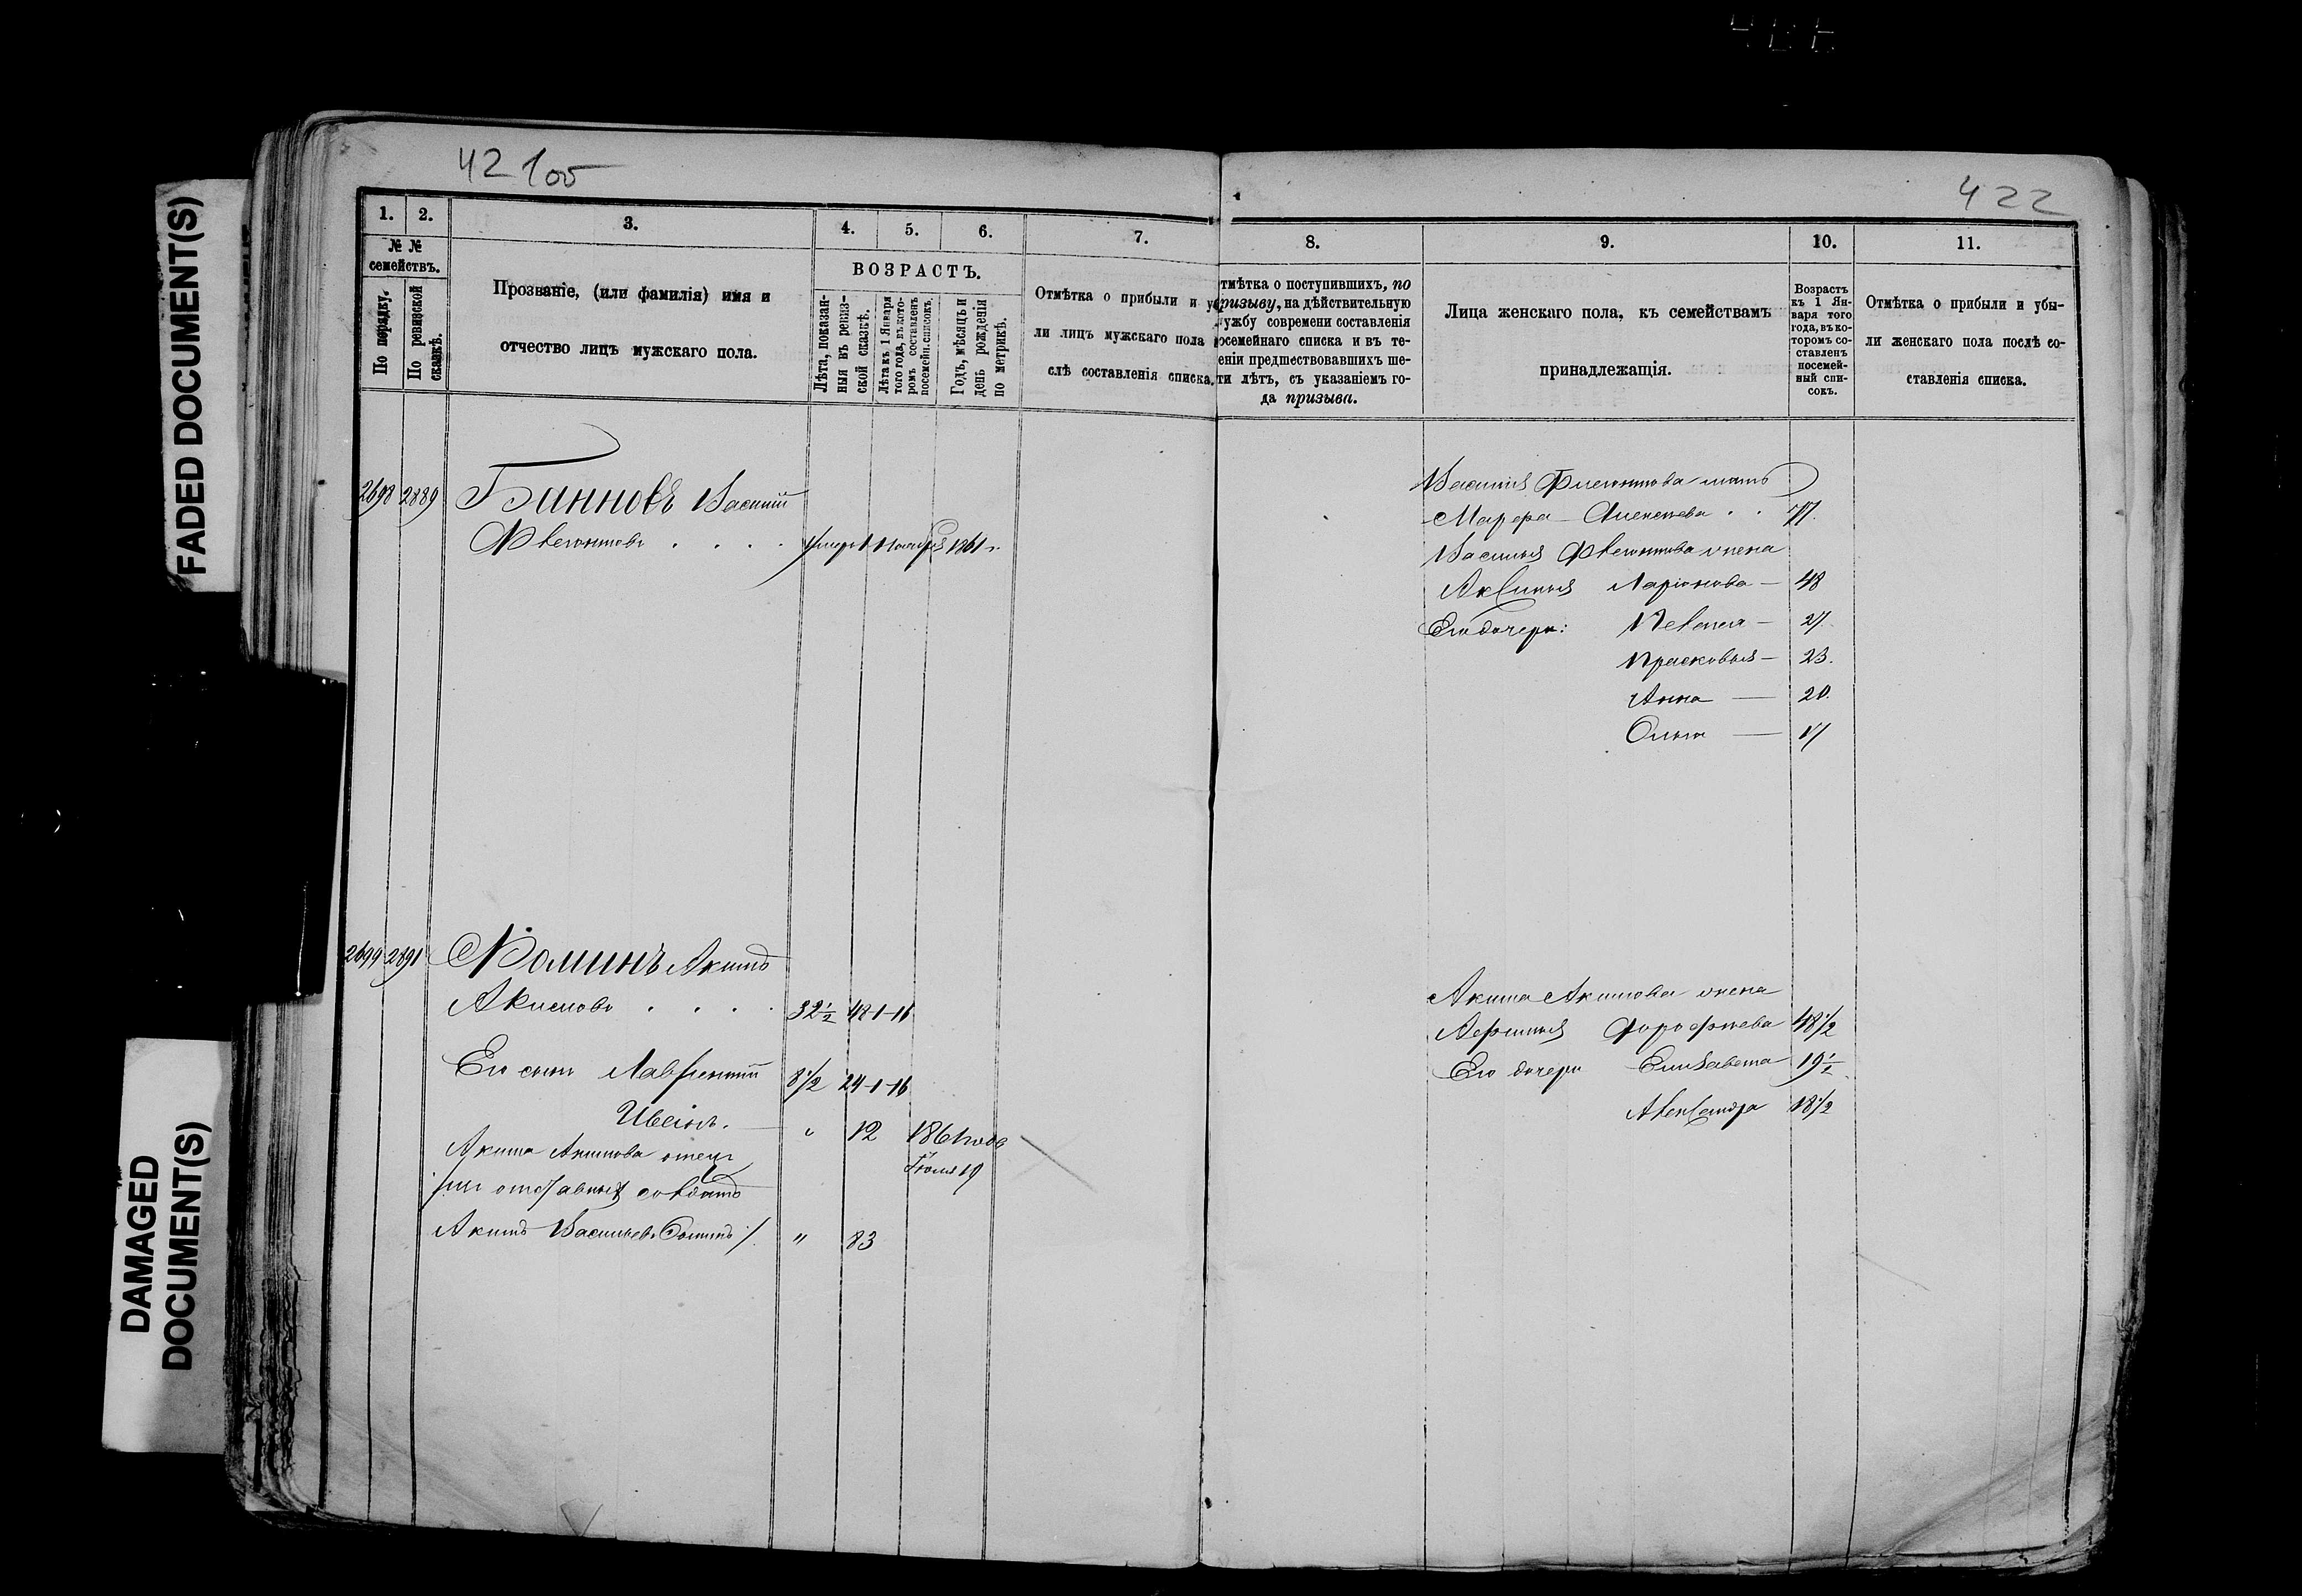 42 1об
422
FADED DOCUMENT(S)
DAMAGED
DOCUMENT(S)
1.
2.
3.
4.
5.
6.
7.
8.
9.
10.
11.
№ №
семействъ.
По порядку.
По ревизской
сказкѣ.
Прозваніе, (или фамилія) имя и
отчество лицъ мужскаго пола.
ВОЗРАСТЪ.
Лѣта, показан-
ныя въ ревиз-
ской сказкѣ.
Лѣта къ 1 Января
того года, въ кото-
ромъ составленъ
посемейн. списокъ.
Годъ, мѣсяцъ и
день рожденія
по метрикѣ.
Отмѣтка о прибыли и у
ли лицъ мужскаго пола
слѣ составленія списка.
тмѣтка о поступившихъ, по
ризыву, на дѣйствительную
ужбу современи составленія
осемейнаго списка и въ те-
еніи предшествовавшихъ ше-
ти лѣтъ, съ указаніемъ го-
да призыва.
Лица женскаго пола, къ семействамъ
принадлежащія.
Возрастъ
къ 1 Ян-
варя того
года, въ ко-
торомъ со-
ставленъ
посемей-
ный спи-
сокъ.
Отмѣтка о прибыли и убы-
ли женскаго пола послѣ со-
ставленія списка.
2698 2889 Банновъ Василій
Флегонтовъ . . . . умеръ 1 Ноября 1861 г.
Василія Флегонтова мать
Марфа Алексѣева . . 77.
Василья Флегонтова жена
Аксинья Ларіонова — 48
Его дочери: Пелагея — 27.
Прасковья — 23.
Анна — 20.
Ольга — 17
2699 2891 Фоминъ Акимъ
Акимовъ . . . . 32½ 48-1-16
Его сынъ Лаврентій 8½ 24-1-16
12 1861 года
Іюля 19
Акима Акимова отецъ
отставный солдатъ
Акимъ Васильевъ Фоминъ /. " 83
Акима Акимова жена
Афимья Дорофѣева 48½
Его дочери Елизавета 19½
Александра 18½